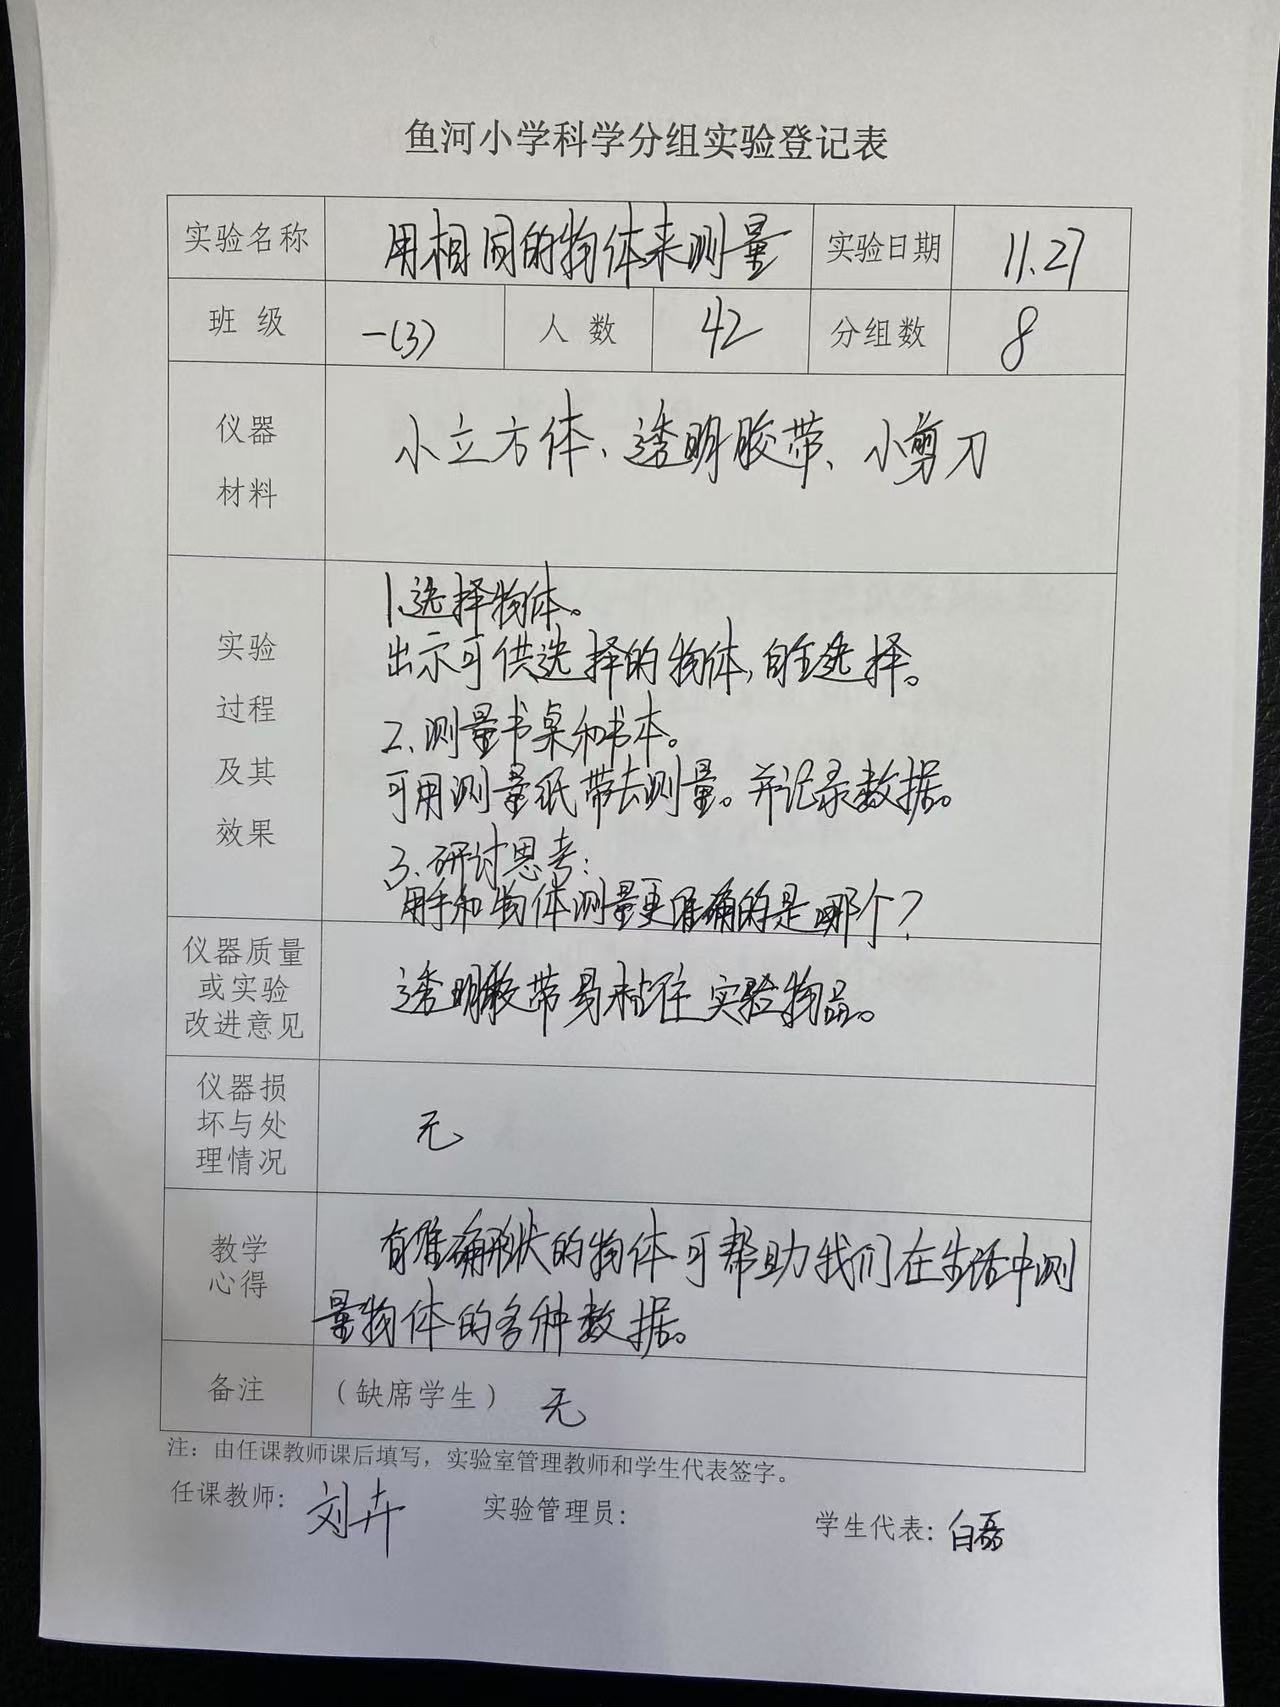 鱼河小学科学分组实验登记表
实验名称 用相同的物体来测量 实验日期 11.27
班 级 一(3) 人 数 42 分组数 8
仪器
材料
小立方体、透明胶带、小剪刀
实验
过程
及其
效果
1.选择物体。
出示可供选择的物体,自主选择。
2.测量书桌和书本。
可用测量纸带去测量。并记录数据。
3.研讨思考:
用手和物体测量更准确的是哪个?
仪器质量
或实验
改进意见
透明胶带易粘住实验物品。
仪器损
坏与处
理情况
无
教学
心得
有准确形状的物体可帮助我们在生活中测
量物体的各种数据。
备注 (缺席学生) 无
注:由任课教师课后填写,实验室管理教师和学生代表签字。
任课教师: 刘卉 实验管理员: 学生代表: 白磊